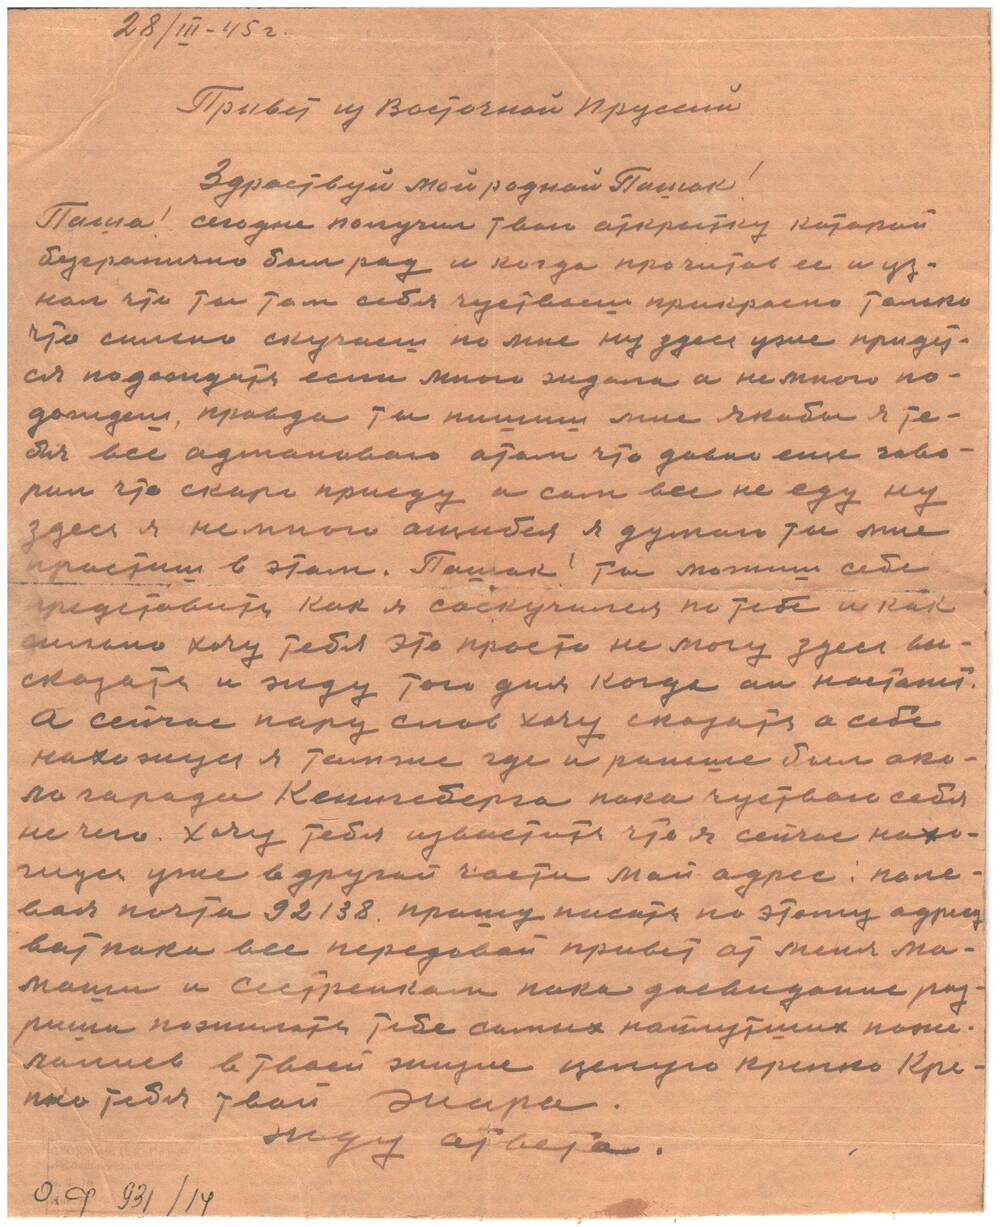 28/III-45 г.
Привет из Восточной Пруссий
Здраствуй мой родной Пашок!
Паша! сегодне получил твою аткрытку каторай
безгранично был рад и когда прочитав ее и уз-
нал что ты там себя чуствоеш прикрасно только
что сильно скучаеш по мне ну здесь уже придет-
ся подождать если много ждала а немного по-
дождеш, правда ты пишиш мне якобы я те-
бя все адмановаю атом что давно еще гово-
рил что скаро приеду а сам все не еду ну
здесь я немного ашибся я думаю ты мне
простиш в этом. Пашок! ты можиш себе
представить как я соскучился по тебе и как
сильно хочу тебя это просто не могу здесь вы-
сказать и жду того дня когда он настанит.
А сейчас пару слов хочу сказать а себе
нахожуся я тамже где и раньше был око-
ло гарада Кенигсберга пока чуствою себя
не чего. Хочу тебя извистить что я сейчас нахо-
жуся уже в другой части мой адрес: поле-
вая почта 92138. прашу писать по этому адресу
вот пока все передовай привет от меня ма-
маши и сестренкам пока досвидание раз-
риши пожилать тебе самых найлутших поже-
ланиев в твоей жизне целую крепко Кре-
пко тебя твой Жора.
жду атвета.
О.Ф 931/14